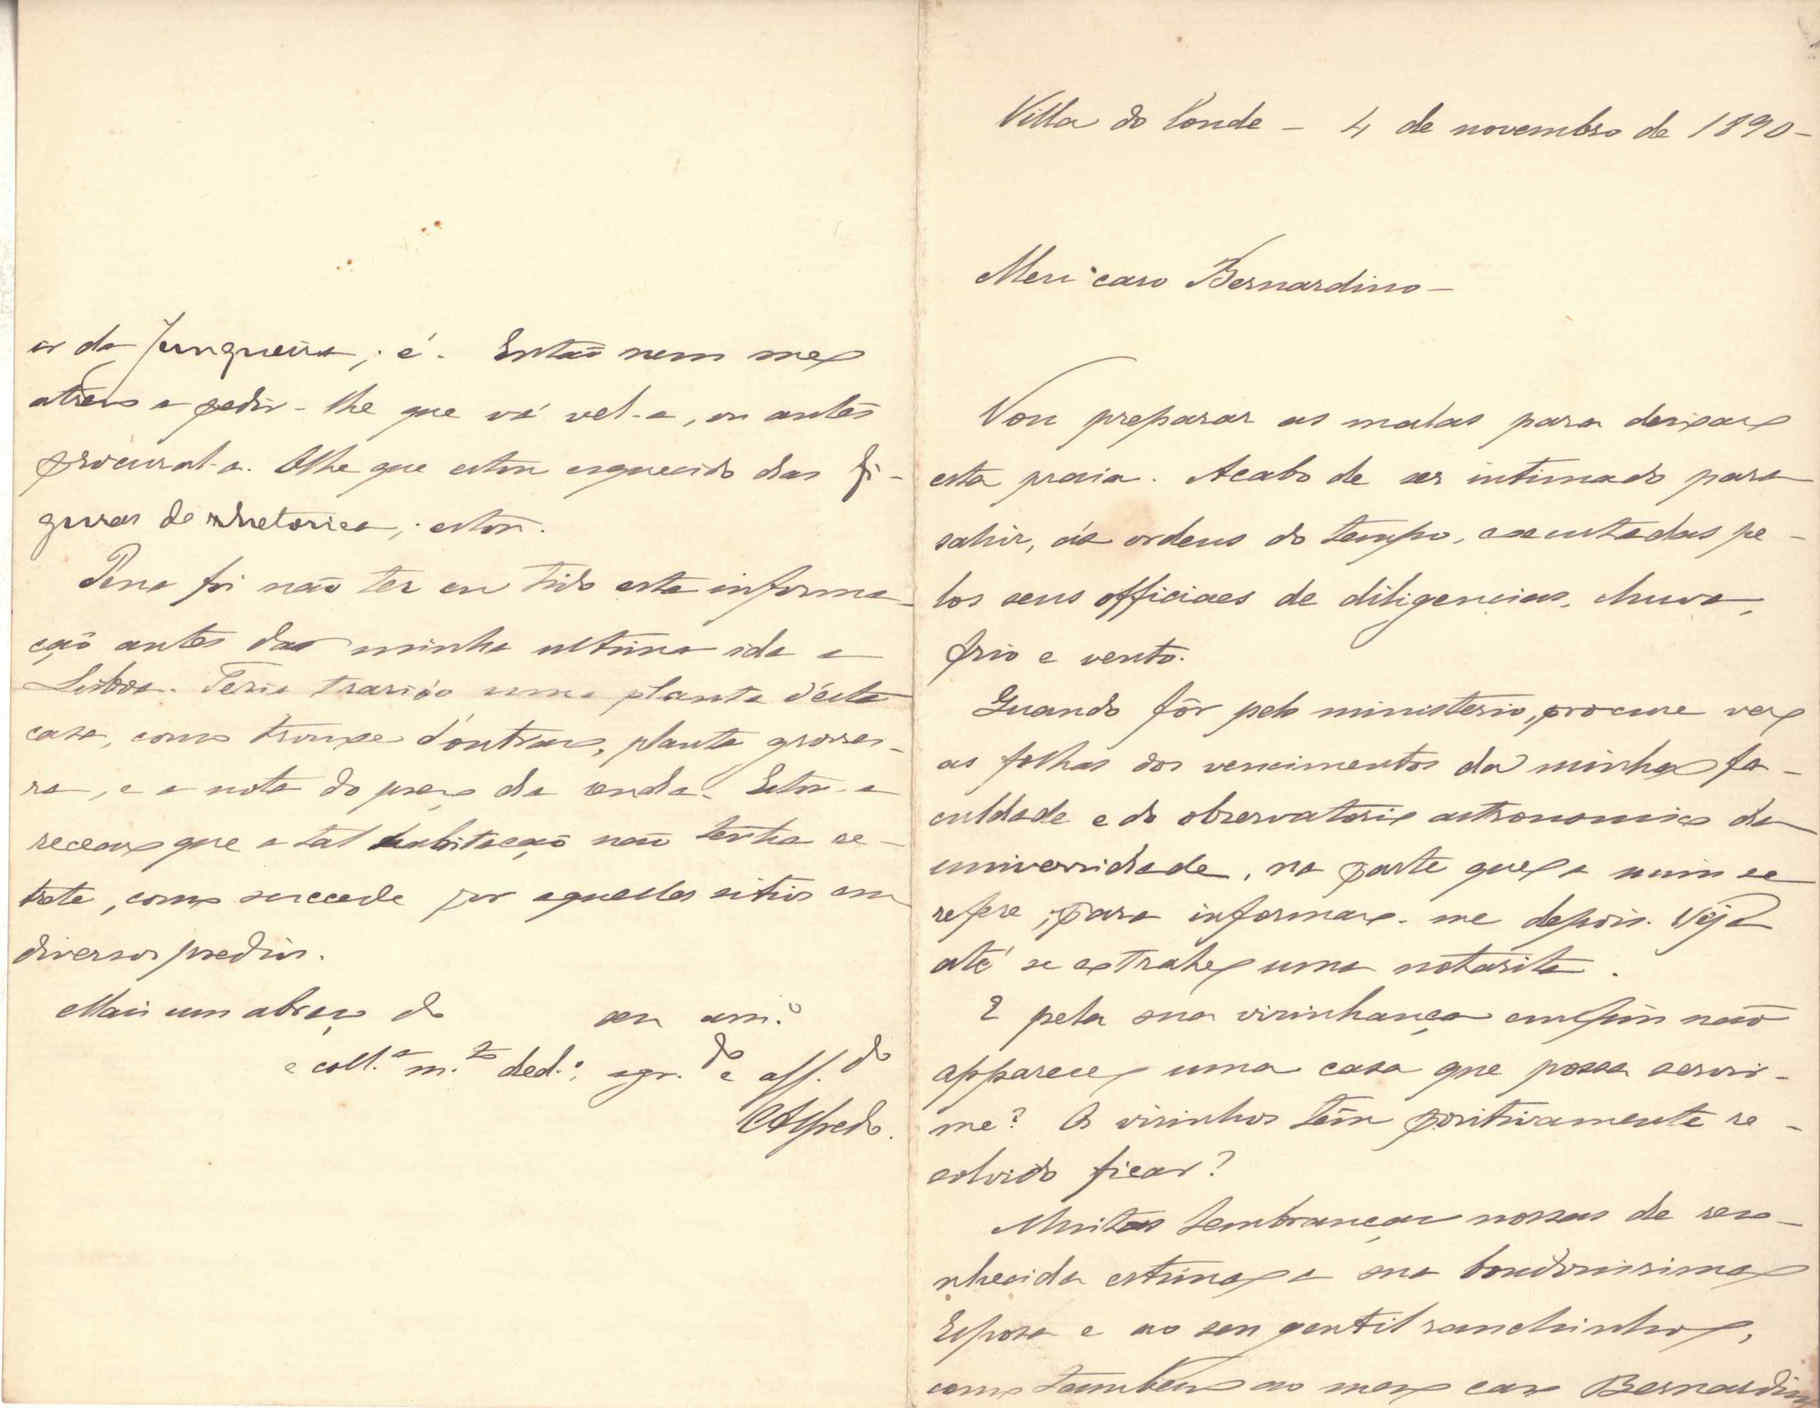 Villa do Conde - 4 de novembro de 1890 -
Meu caro Bernardino -
Vou preparar as malas para deixar
esta praia. Acabo de ser intimado para
sahir, ás ordens do tempo, executadas pe-
los seus officiaes de diligencias, chuva,
frio e vento.
Quando fôr pelo ministerio, procure ver
as folhas dos vencimentos da minha fa-
culdade e do observatorio astronomico da
universidade, na parte que a mim se
refere, para informar-me depois. Veja
até se extrahe uma notasita.
E pela sua visinhança emfim não
apparece uma casa que possa servir-
me? Os visinhos têm positivamente re-
solvido ficar?
Muitas lembranças nossas de reco-
nhecida estima a sua bondosissima
Esposa e ao seu gentil ranchinho,
como tambem ao meu caro Bernardino
ar da Junqueira, é. Então nem me
atrevo a pedir-lhe que vá vel-a, ou antes
procural-a. Olhe que estou esquecido das fi-
guras de rhetorica, estou.
Pena foi não ter eu tido esta informa-
ção antes da minha ultima ida a
Lisboa. Teria trasido uma planta d'esta
casa, como trouxe d'outras, planta grossei-
ra, e a nota do preço da renda. Estou a
recear que a tal habitação não tenha re-
trete, como succede por aquelles sitios em
diversos predios.
Mais um abraço do seu am.º
e coll.ª m.to ded.º, agr.do e aff.do
Alfredo.